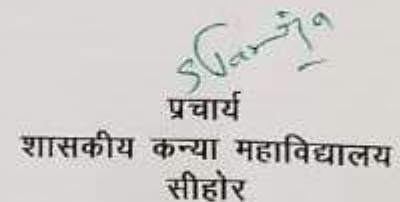 प्रचार्य
शासकीय कन्या महाविद्यालय
सीहोर